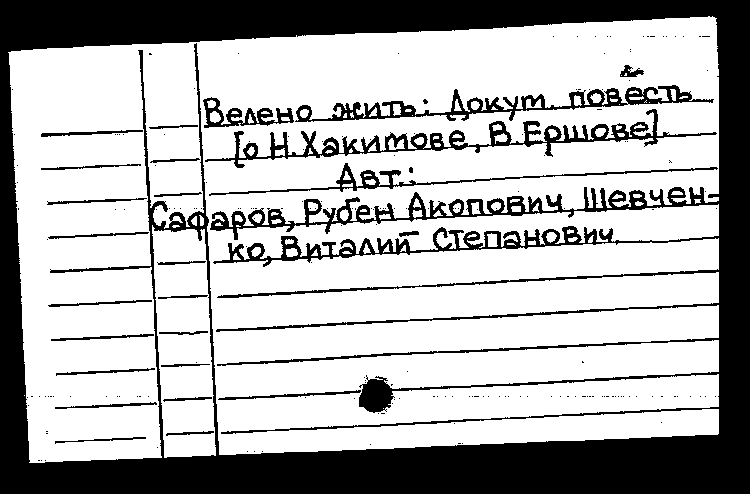 Велено жить: Докум. повесть
[о Н. Хакимове, В. Ершове].
Авт.:
Сафаров, Рубен Акопович, Шевчен-
ко, Виталий Степанович.